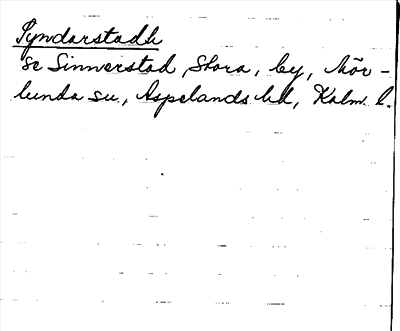 Syndarstadh
se Sinnerstad, Stora, by, Mör-
lunda sn, Aspelands hd, Kalm. l.